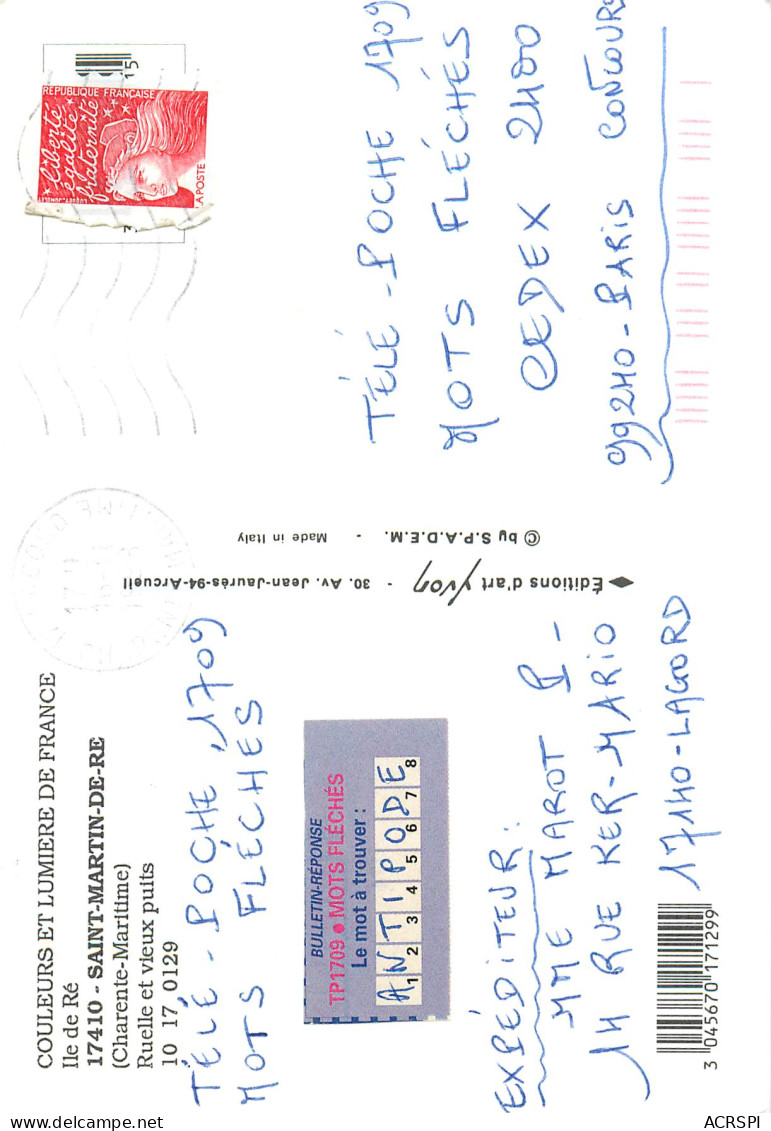 COULEURS ET LUMIERE DE FRANCE
Ile de Ré
17410 - SAINT-MARTIN-DE-RE
(Charente-Maritime)
Ruelle et vieux puits
10 17 0129
TÉLÉ-POCHE 1709
MOTS FLÉCHÉS
BULLETIN-RÉPONSE
TP1709 ● MOTS FLÉCHÉS
Le mot à trouver :
ANTIPODE
1 2 3 4 5 6 7 8
EXPÉDITEUR:
MME MAROT P-
14 RUE KER-MARIO
17140-LAGORD
3 045670 171299
Éditions d'art Yvon - 30. Av. Jean-Jaurès-94-Arcueil
© by S.P.A.D.E.M. - Made in Italy
15
RÉPUBLIQUE FRANÇAISE
liberté
égalité
fraternité
LA POSTE
TÉLÉ-POCHE 1709
MOTS FLÉCHÉS
CEDEX 2400
99240-PARIS CONCOURS
ACRSPI